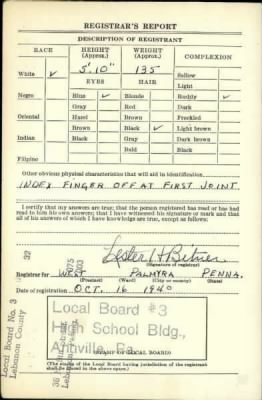 REGISTRAR'S REPORT
DESCRIPTION OF REGISTRANT
RACE HEIGHT (Approx.) WEIGHT (Approx.) COMPLEXION
5' 10" 135
White ✓ EYES HAIR Sallow
Light
Negro Blue ✓ Blonde Ruddy ✓
Gray Red Dark
Oriental Hazel Brown Freckled
Brown Black ✓ Light brown
Indian Black Gray Dark brown
Bald Black
Filipino
Other obvious physical characteristics that will aid in identification
INDEX FINGER OFF AT FIRST JOINT.
I certify that my answers are true; that the person registered has read or has had
read to him his own answers; that I have witnessed his signature or mark and that
all of his answers of which I have knowledge are true, except as follows:
37
(Signature of registrar)
Registrar for WEST PALMYRA PENNA.
(Precinct) (Ward) (City or county) (State)
Date of registration OCT. 16 1940
Local Board No. 3
Lebanon County
Local Board #3
High School Bldg.,
Annville, Pa.
(STAMP OF LOCAL BOARD)
(The stamp of the Local Board having jurisdiction of the registrant
shall be placed in the above space.)